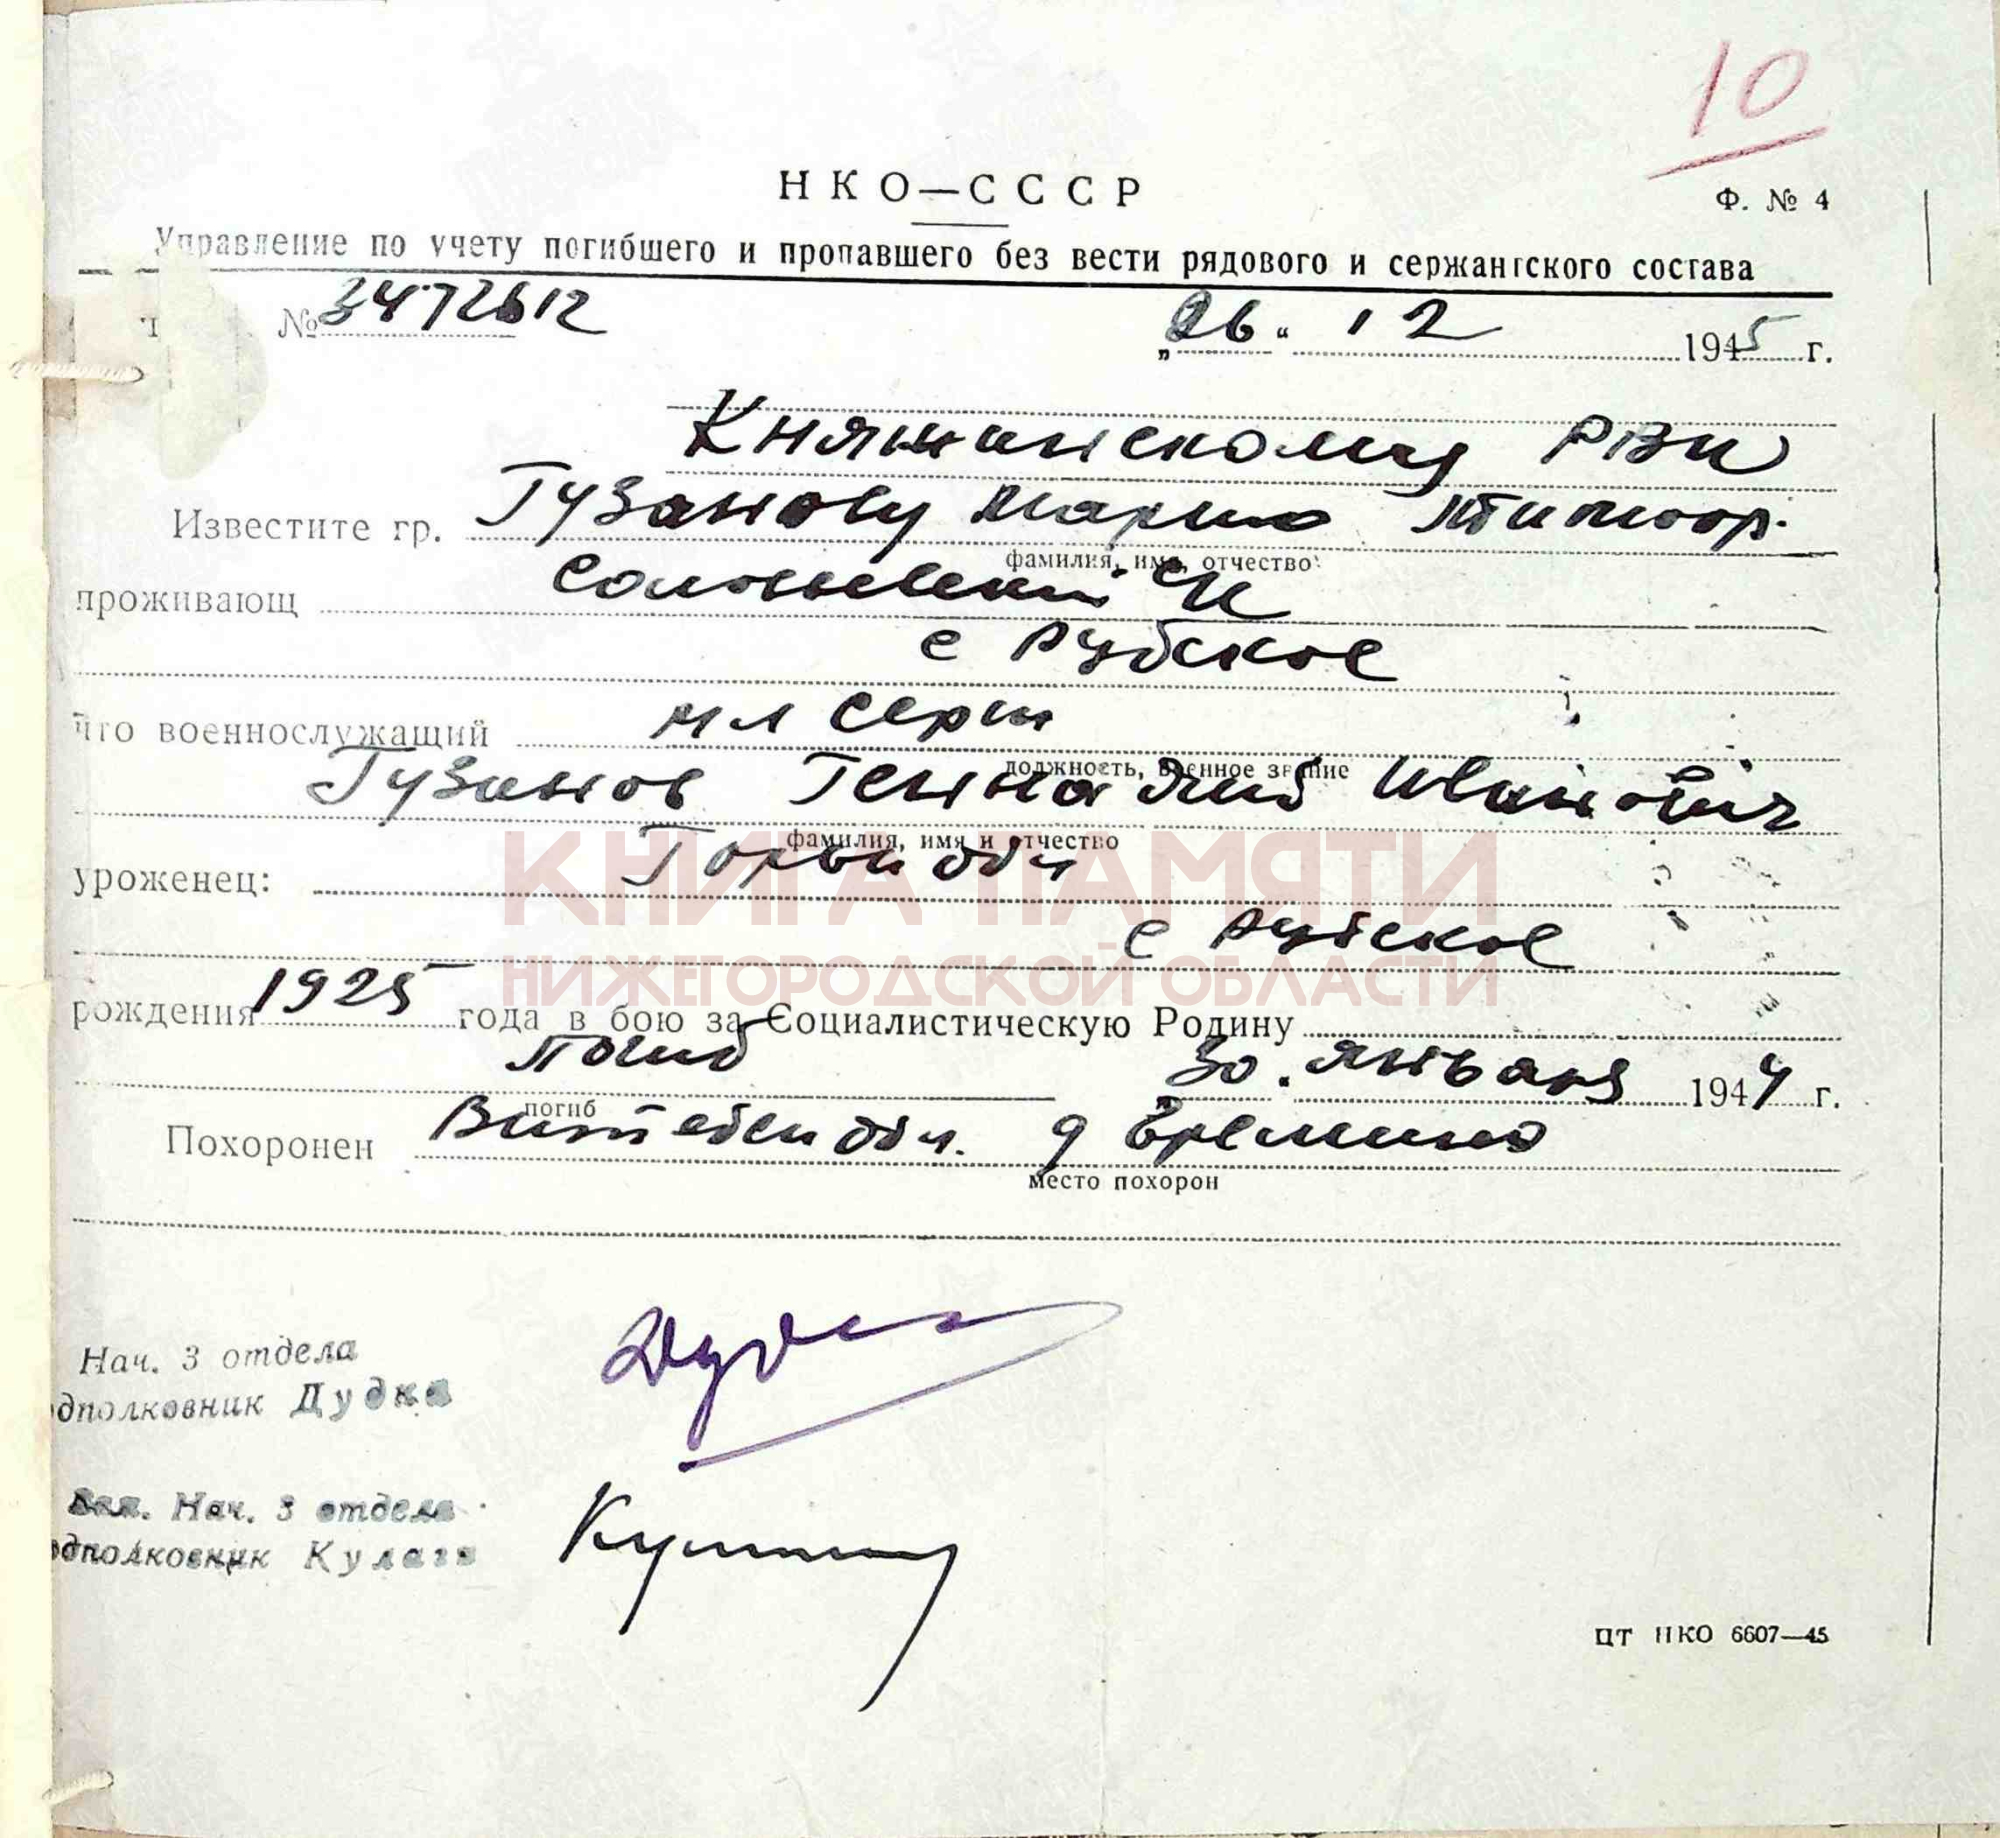 10
НКО—СССР
Ф. № 4
Управление по учету погибшего и пропавшего без вести рядового и сержантского состава
№ 3472612
„26“ 12 1945 г.
Княгинскому РВК
Известите гр. Гузанову Марию
фамилия, имя, отчество
проживающ
с Рубское
что военнослужащий мл серж
должность, военное звание
Гузанов Геннадий Иванович
фамилия, имя и отчество
уроженец: Горьк обл
с Рубское
рождения 1925 года в бою за Социалистическую Родину
погиб 30. января 1944 г.
погиб
Похоронен Витебск обл. д Еремино
место похорон
Нач. 3 отдела
одполковник Дудка
Зам. Нач. 3 отдела
одполковник Кулаги
ЦТ НКО 6607—45
КНИГА ПАМЯТИ
НИЖЕГОРОДСКОЙ ОБЛАСТИ